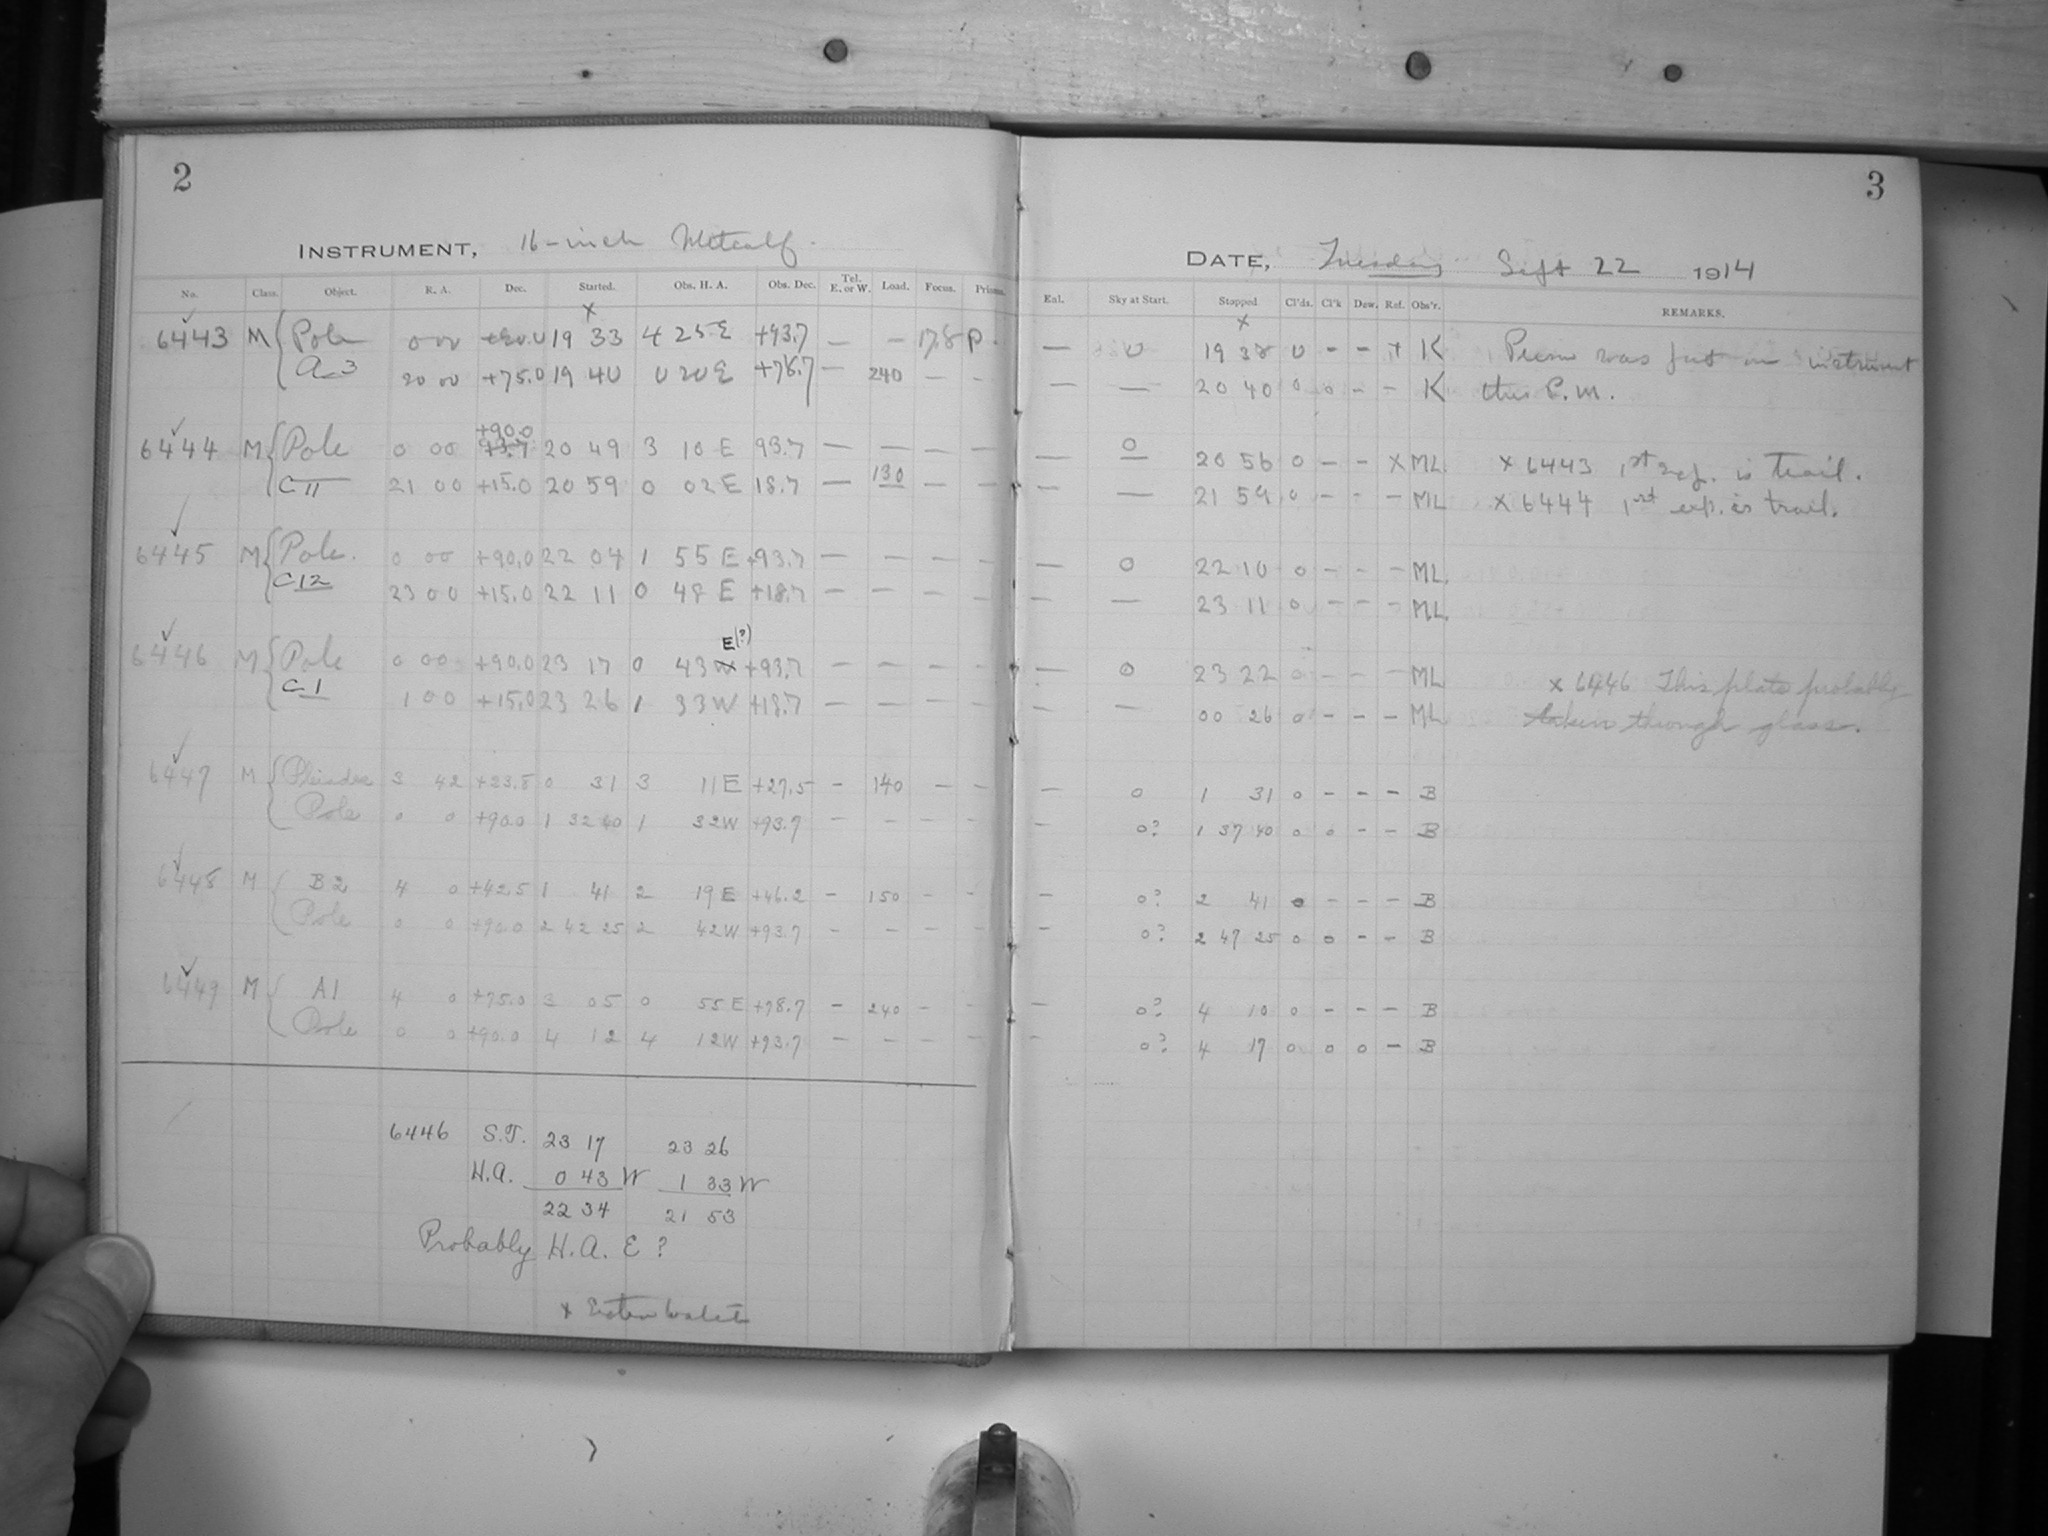 2
INSTRUMENT, 16-inch Metcalf.
No. Class. Object. R. A. Dec. Started. Obs. H. A. Obs. Dec. Tel. E. or W. Load. Focus. Prism.
x
6443 M Pole 0 00 +90.0 19 33 4 25 E +93.7 — — 17.8 P.
A 3 20 00 +75.0 19 40 0 20 E +78.7 — 240 — -
+90.0
6444 M Pole 0 00 93.7 20 49 3 10 E 93.7 — — — —
C 11 21 00 +15.0 20 59 0 02 E 18.7 — 130 — —
6445 M Pole. 0 00 +90.0 22 04 1 55 E +93.7 — — — —
C 12 23 00 +15.0 22 11 0 48 E +18.7 — — — —
E(?)
6446 M Pole 0 00 +90.0 23 17 0 43 W +93.7 — — — —
C 1 1 00 +15.0 23 26 1 33 W +18.7 — — — —
6447 M Pleiades 3 42 +23.8 0 31 3 11 E +27.5 - 140 — -
Pole 0 0 +90.0 1 32 40 1 32 W +93.7 - - - -
6448 M B 2 4 0 +42.5 1 41 2 19 E +46.2 - 150 - -
Pole 0 0 +90.0 2 42 25 2 42 W +93.7 - - - -
6449 M A1 4 0 +75.0 3 05 0 55 E +78.7 - 240 - -
Pole 0 0 +90.0 4 12 4 12 W +93.7 — - - -
6446 S.T. 23 17 23 26
H.A. 0 43 W 1 33 W
22 34 21 53
Probably H.A. E ?
3
DATE, Tuesday Sept 22 1914
Eal. Sky at Start. Stopped Cl'ds. Cl'k Dew. Ref. Obs'r. REMARKS.
x
— 0 19 38 0 - - + K was put on instrument
— — 20 40 0 0 - - K this P.M.
— 0 20 56 0 - - X ML x 6443 1st exp. is trail.
— — 21 59 0 - - - ML x 6444 1st exp. is trail.
— 0 22 10 0 - - - ML.
— — 23 11 0 - - - ML
— 0 23 22 0 - - - ML x 6446 This plate probably
- — 00 26 0 - - - ML taken through glass.
— 0 1 31 0 - - - B
- 0? 1 37 40 0 0 - - B
— 0? 2 41 0 - - - B
- 0? 2 47 25 0 0 - - B
— 0? 4 10 0 - - - B
- 0? 4 17 0 0 0 - B